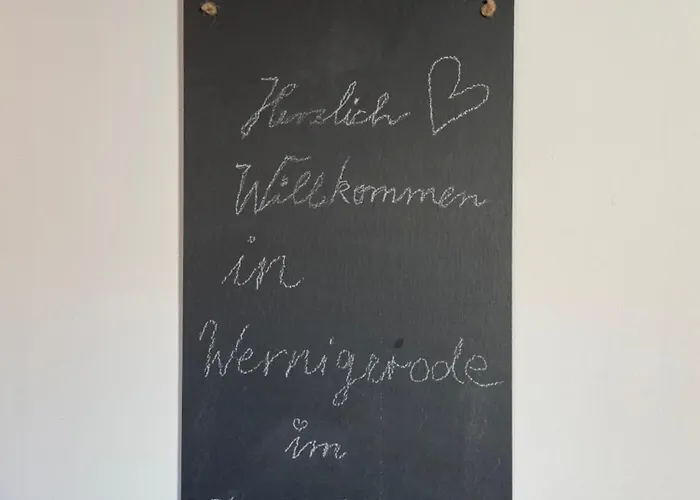 Herzlich
Willkommen
in
Wernigerode
im